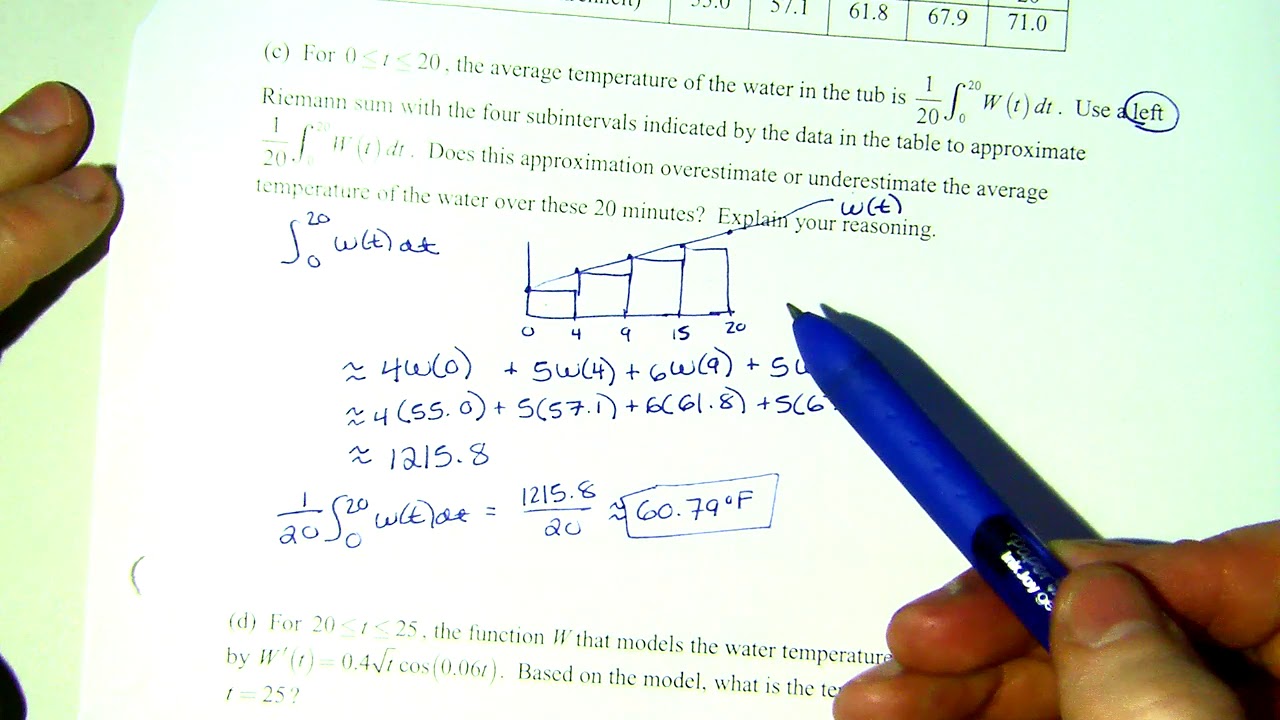 55.0 57.1 61.8 67.9 71.0
(c) For 0 ≤ t ≤ 20, the average temperature of the water in the tub is 1/20 ∫₀²⁰ W(t) dt. Use a left
Riemann sum with the four subintervals indicated by the data in the table to approximate
1/20 ∫₀²⁰ W(t) dt. Does this approximation overestimate or underestimate the average
temperature of the water over these 20 minutes? Explain your reasoning.
w(t)
∫₀²⁰ w(t) dt
0 4 9 15 20
≈ 4w(0) + 5w(4) + 6w(9) + 5w
≈ 4(55.0) + 5(57.1) + 6(61.8) + 5(6
≈ 1215.8
1/20 ∫₀²⁰ w(t) dt = 1215.8/20 ≈ 60.79°F
(d) For 20 ≤ t ≤ 25, the function W that models the water temperature
by W′(t) = 0.4√t cos(0.06t). Based on the model, what is the
t = 25?